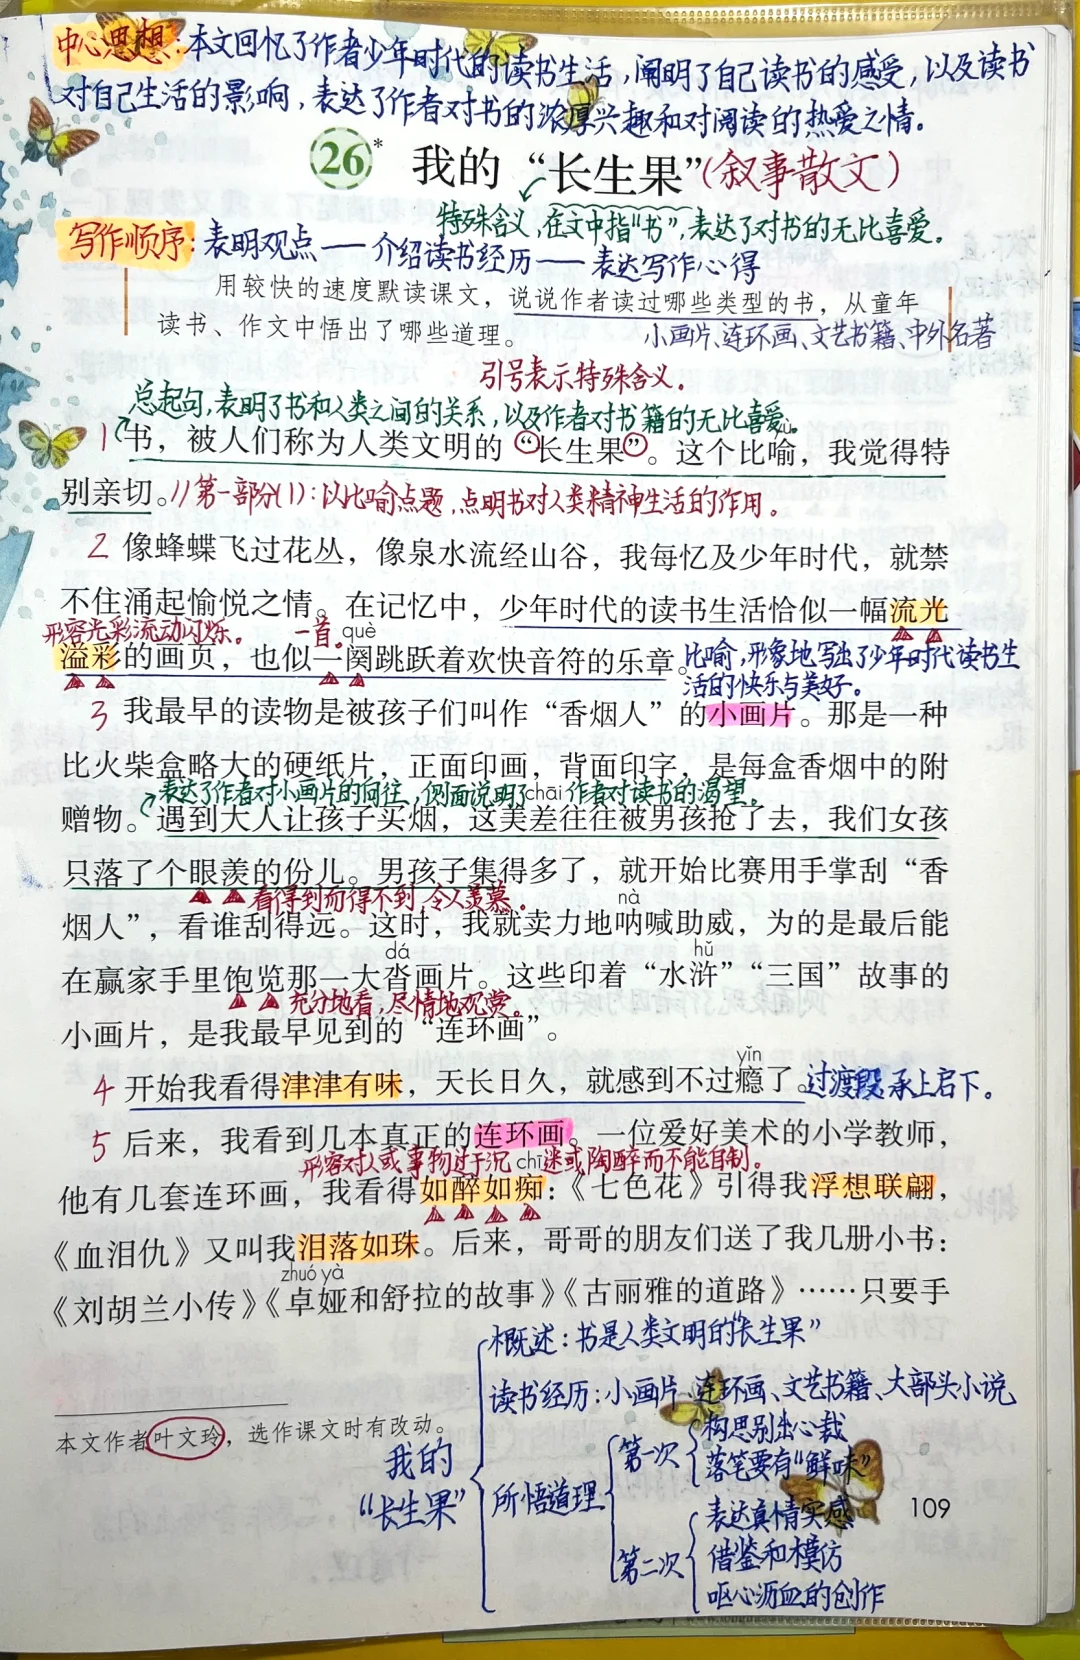 中心思想：本文回忆了作者少年时代的读书生活，阐明了自己读书的感受，以及读书
对自己生活的影响，表达了作者对书的浓厚兴趣和对阅读的热爱之情。
26* 我的“长生果”（叙事散文）
特殊含义，在文中指“书”，表达了对书的无比喜爱。
写作顺序：表明观点——介绍读书经历——表达写作心得
用较快的速度默读课文，说说作者读过哪些类型的书，从童年
读书、作文中悟出了哪些道理。
小画片、连环画、文艺书籍、中外名著
引号表示特殊含义。
总起句，表明了书和人类之间的关系，以及作者对书籍的无比喜爱。
yù
1 书，被人们称为人类文明的“长生果”。这个比喻，我觉得特
别亲切。//第一部分(1)：以比喻点题，点明书对人类精神生活的作用。
2 像蜂蝶飞过花丛，像泉水流经山谷，我每忆及少年时代，就禁
不住涌起愉悦之情。在记忆中，少年时代的读书生活恰似一幅流光
形容光彩流动闪烁。 一首。 què
溢彩的画页，也似一阕跳跃着欢快音符的乐章。比喻，形象地写出了少年时代读书生
活的快乐与美好。
3 我最早的读物是被孩子们叫作“香烟人”的小画片。那是一种
比火柴盒略大的硬纸片，正面印画，背面印字，是每盒香烟中的附
表达了作者对小画片的向往，侧面说明了作者对读书的渴望。
chāi
赠物。遇到大人让孩子买烟，这美差往往被男孩抢了去，我们女孩
只落了个眼羡的份儿。男孩子集得多了，就开始比赛用手掌刮“香
看得到而得不到 令人羡慕。 nà
烟人”，看谁刮得远。这时，我就卖力地呐喊助威，为的是最后能
dá hǔ
在赢家手里饱览那一大沓画片。这些印着“水浒”“三国”故事的
充分地看，尽情地观赏。
小画片，是我最早见到的“连环画”。
yǐn
4 开始我看得津津有味，天长日久，就感到不过瘾了。过渡段 承上启下。
5 后来，我看到几本真正的连环画。一位爱好美术的小学教师，
形容对人或事物过于沉迷或陶醉而不能自制。
chī
他有几套连环画，我看得如醉如痴：《七色花》引得我浮想联翩，
《血泪仇》又叫我泪落如珠。后来，哥哥的朋友们送了我几册小书：
zhuó yà
《刘胡兰小传》《卓娅和舒拉的故事》《古丽雅的道路》……只要手
本文作者叶文玲，选作课文时有改动。
我的
“长生果”
概述：书是人类文明的“长生果”
读书经历：小画片、连环画、文艺书籍、大部头小说
所悟道理
第一次
构思别出心裁
落笔要有“鲜味”
第二次
表达真情实感
借鉴和模仿
呕心沥血的创作
109